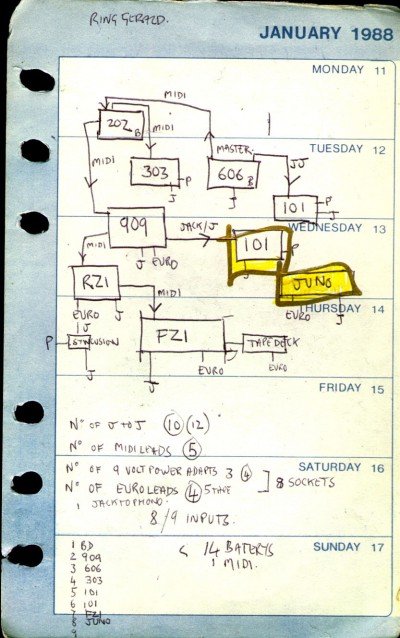 RING GERALD.
JANUARY 1988
MONDAY 11
MIDI
202 B
MIDI
MIDI
MASTER.
TUESDAY 12
JJ
303
P
J
606 B
J
101
P
J
WEDNESDAY 13
909
JACK/J
101
P
J
J EURO
MIDI
RZ1
MIDI
JUNO
EURO
J
THURSDAY 14
EURO
J
J
P
J
FZ1
TAPEDECK
J
EURO
J
EURO
FRIDAY 15
Nº OF J TO J 10 (12)
Nº OF MIDI LEADS 5
SATURDAY 16
Nº OF 9 VOLT POWER ADAPTS 3 4
Nº OF EURO LEADS 4
] 8 SOCKETS
1 JACK TO PHONO.
8/9 INPUTS.
SUNDAY 17
14 BATERYS
1 MIDI.
1 BD
2 909
3 606
4 303
5 101
6 101
7 FZ1
8 JUNO
9